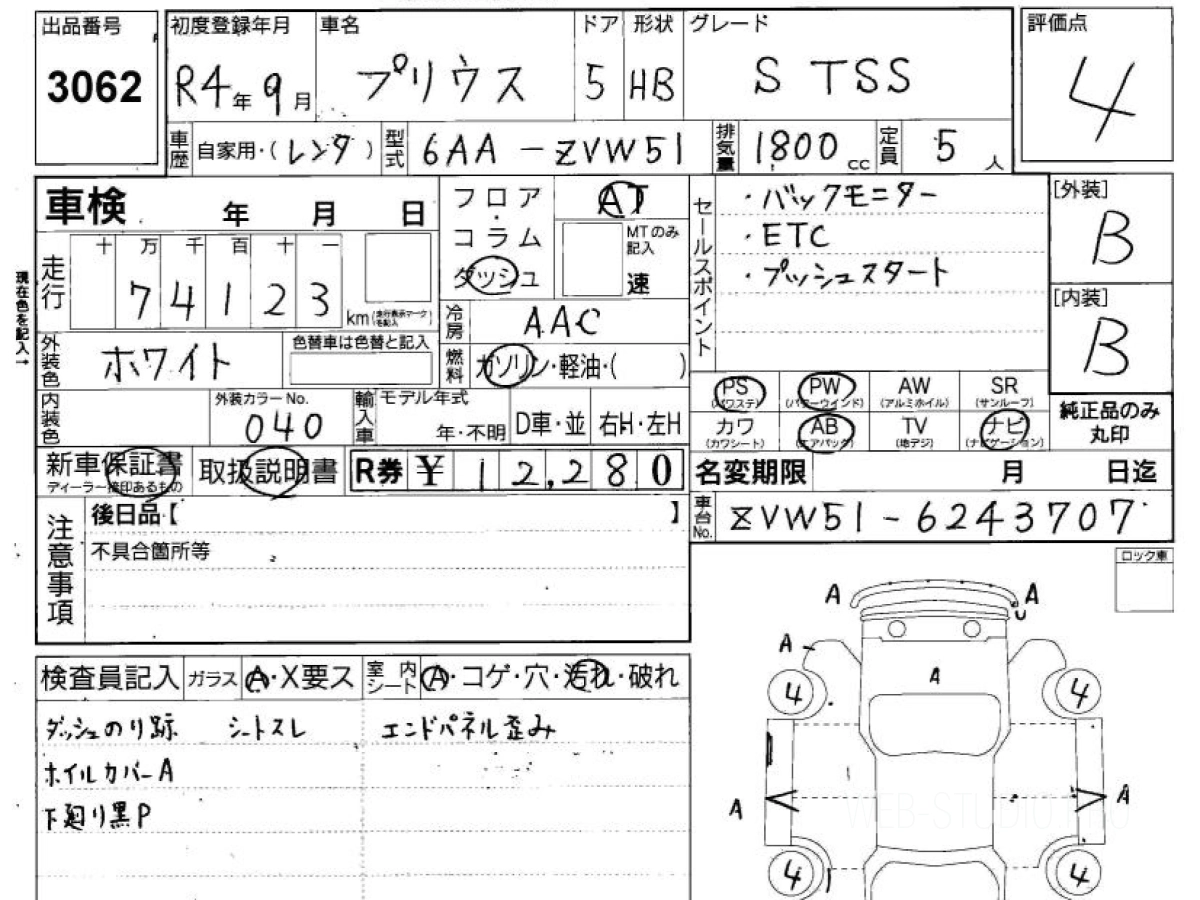 出品番号
3062
初度登録年月
R4年9月
車名
プリウス
ドア
5
形状
HB
グレード
S TSS
評価点
4
車歴
自家用・(レンタ)
型式
6AA-ZVW51
排気量
1800cc
定員
5人
車検 年 月 日
現在色を記入→
走行
十 万 千 百 十 一
7 4 1 2 3
km(走行表示マークを記入)
フロア・コラム
ダッシュ
AT
MTのみ記入
速
冷房
AAC
外装色
ホワイト
色替車は色替と記入
燃料
ガソリン・軽油・( )
内装色
外装カラーNo.
040
輸入車
モデル年式
年・不明
D車・並
右H・左H
セールスポイント
・バックモニター
・ETC
・プッシュスタート
[外装]
B
[内装]
B
PS
(パワステ)
PW
(パワーウインド)
AW
(アルミホイル)
SR
(サンルーフ)
カワ
(カワシート)
AB
(エアバック)
TV
(地デジ)
ナビ
(ナビゲーション)
純正品のみ
丸印
新車保証書
ディーラー捺印あるもの
取扱説明書
R券 ¥ 12,280
名変期限 月 日迄
車台No.
ZVW51-6243707
注意事項
後日品【 】
不具合箇所等
ロック車
検査員記入
ガラス
A・X要ス
室内シート
A・コゲ・穴・汚れ・破れ
ダッシュのり跡 シートスレ エンドパネル歪み
ホイルカバーA
下廻り黒P
A A
U
A
A
4 4
A A
4 4
WEB-STUDIO.PRO